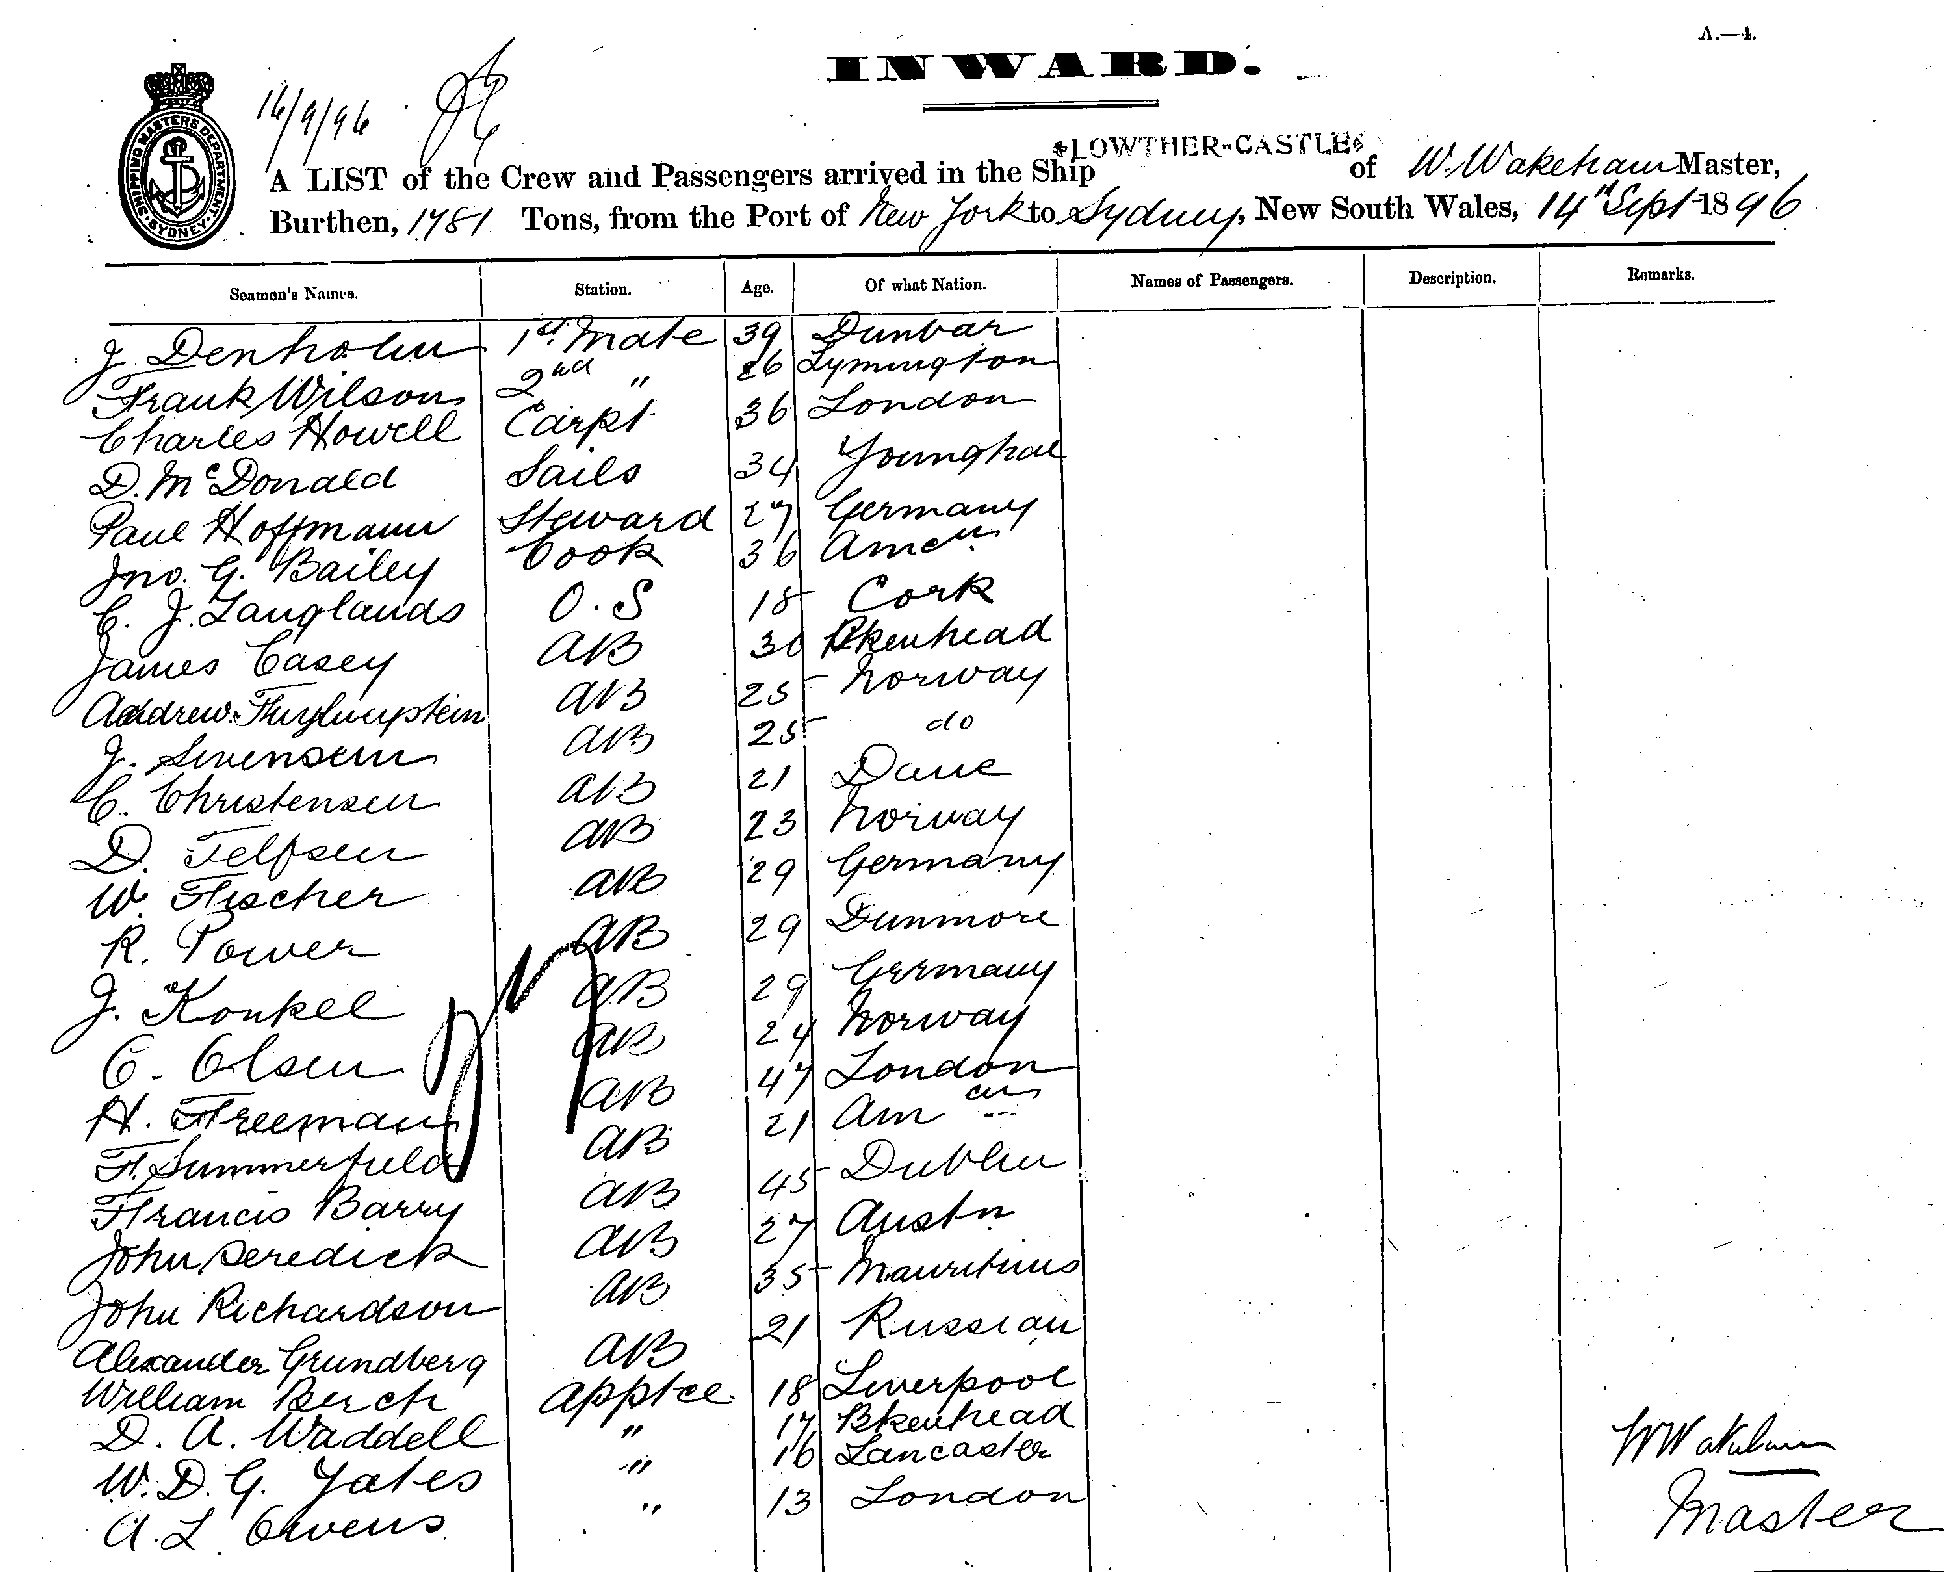 A.—4.
INWARD.
16/9/96
SHIPPING MASTERS DEPARTMENT SYDNEY
LOWTHER-CASTLE
A LIST of the Crew and Passengers arrived in the Ship of W. Wakeham Master,
Burthen, 1781 Tons, from the Port of New York to Sydney, New South Wales, 14th Sept 1896
Seamen's Names. Station. Age. Of what Nation. Names of Passengers. Description. Remarks.
J. Denholm 1st Mate 39 Dunbar
Frank Wilson 2nd " 26 Lymington
Charles Howell Carpt 36 London
D. McDonald Sails 34 Younghal
Paul Hoffmann Steward 27 Germany
Jno. G. Bailey Cook 36 Amcn
C. J. Langlands O.S 18 Cork
James Casey AB 30 Bkenhead
Andrew AB 25 Norway
J. Swensen AB 25 do
C. Christensen AB 21 Dane
D. Telfsen AB 23 Norway
W. Fischer AB 29 Germany
R. Power AB 29 Dunmore
J. Konkel AB 29 Germany
C. Olsen AB 24 Norway
H. Freeman AB 47 London
F. Summerfield AB 21 Am cn
Francis Barry AB 45 Dublin
John Deredick AB 27 Austn
John Richardson AB 35 Mauritius
Alexander Grundberg AB 21 Russian
William Berch Apptce 18 Liverpool
D. A. Waddell " 17 Bkenhead
W. D. G. Yates " 16 Lancaster
A. L. Owens " 13 London
W Wakeham
Master